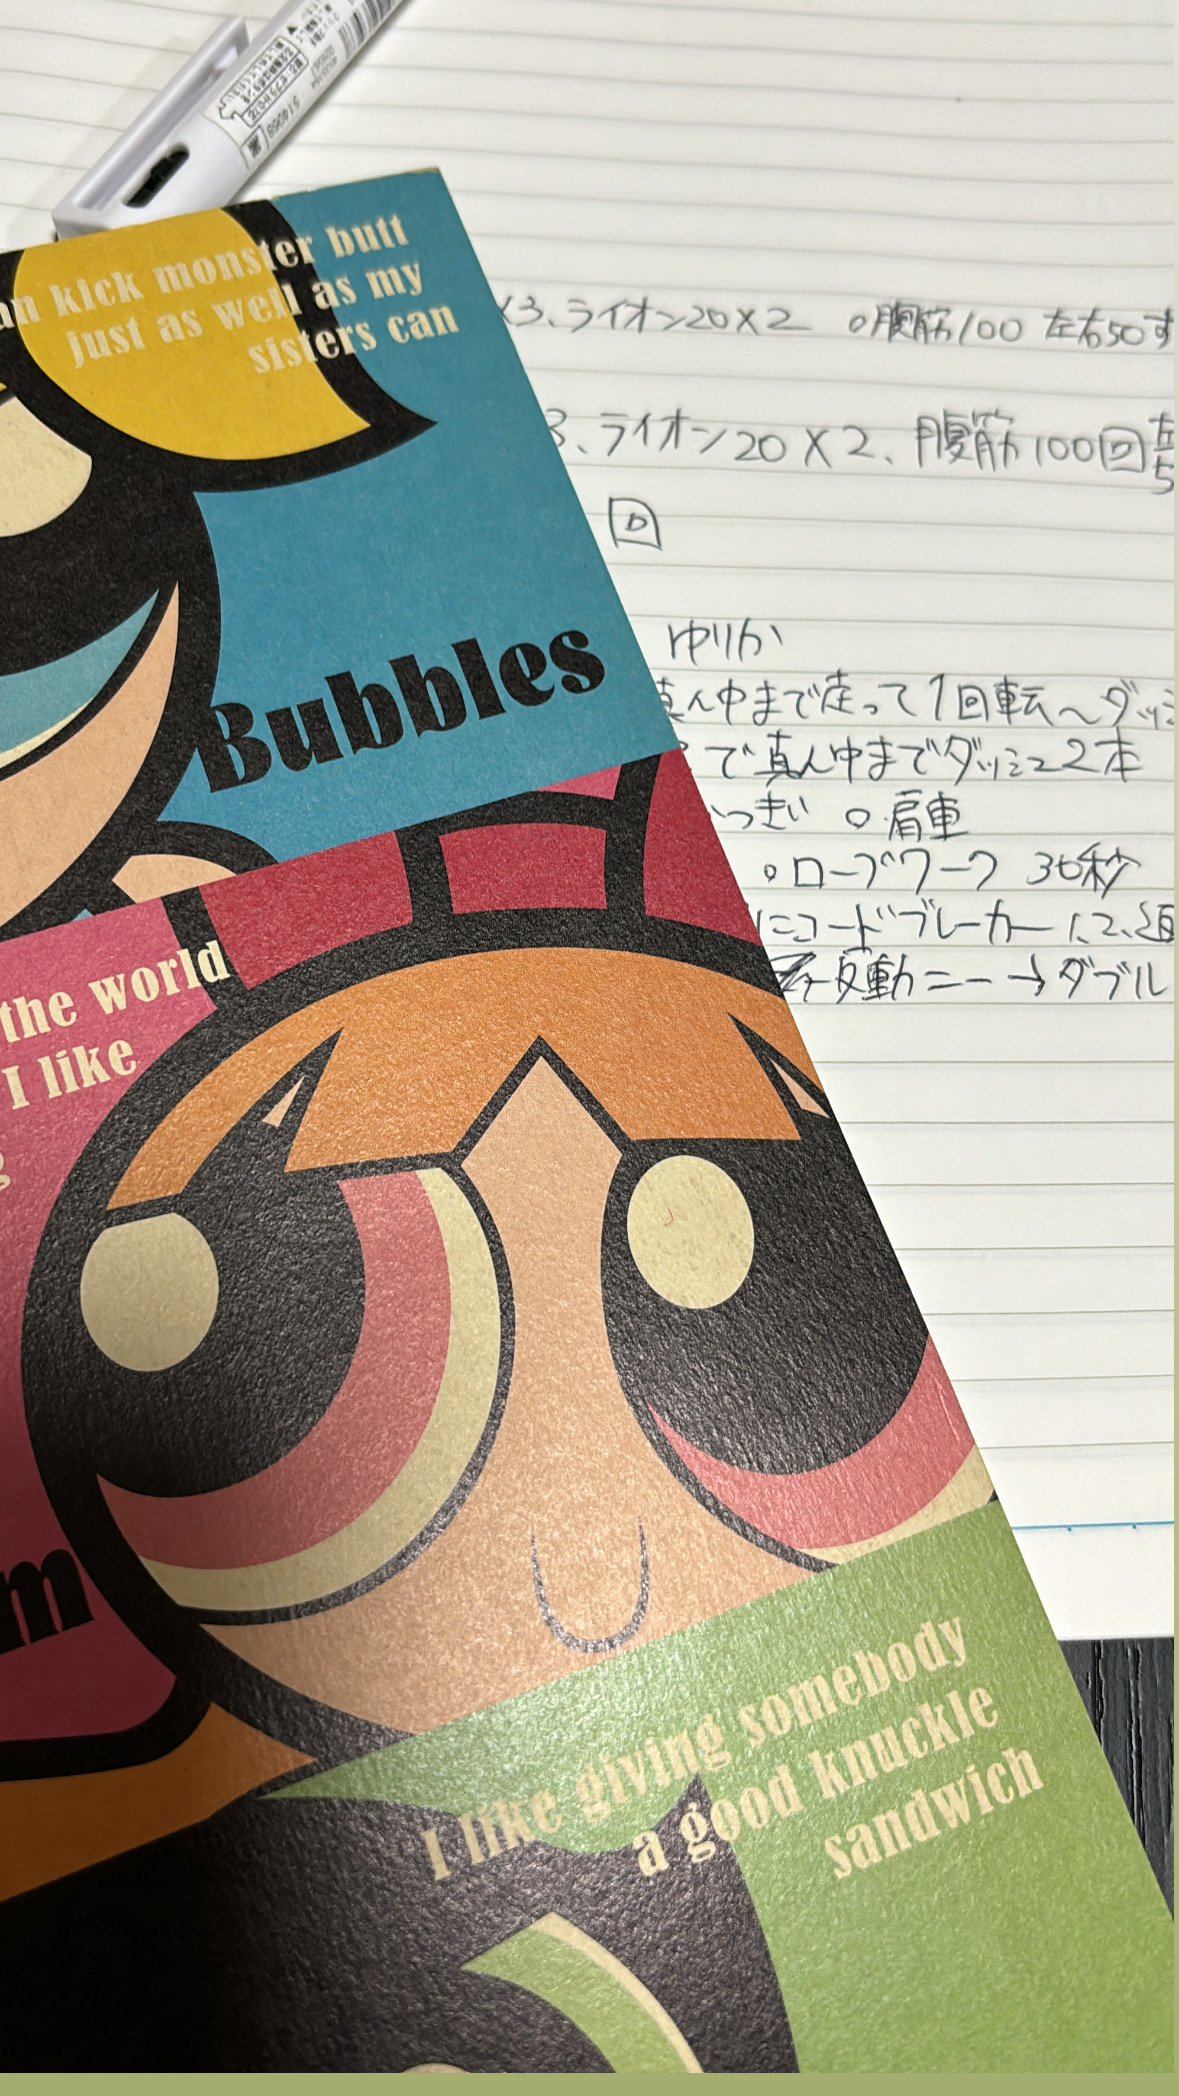 an kick monster butt
just as well as my
sisters can
Bubbles
the world
I like
g
m
I like giving somebody
a good knuckle
sandwich
514068
×3、ライオン20×2 o腹筋100 左右50ず
3、ライオン20×2、腹筋100回左
5
回
ゆりか
真ん中まで走って1回転〜ダッシ
で真ん中までダッシュ2本
っきい o肩車
oロープワーク 30秒
にコードブレーカー1、2、3
反動ニー→ダブル